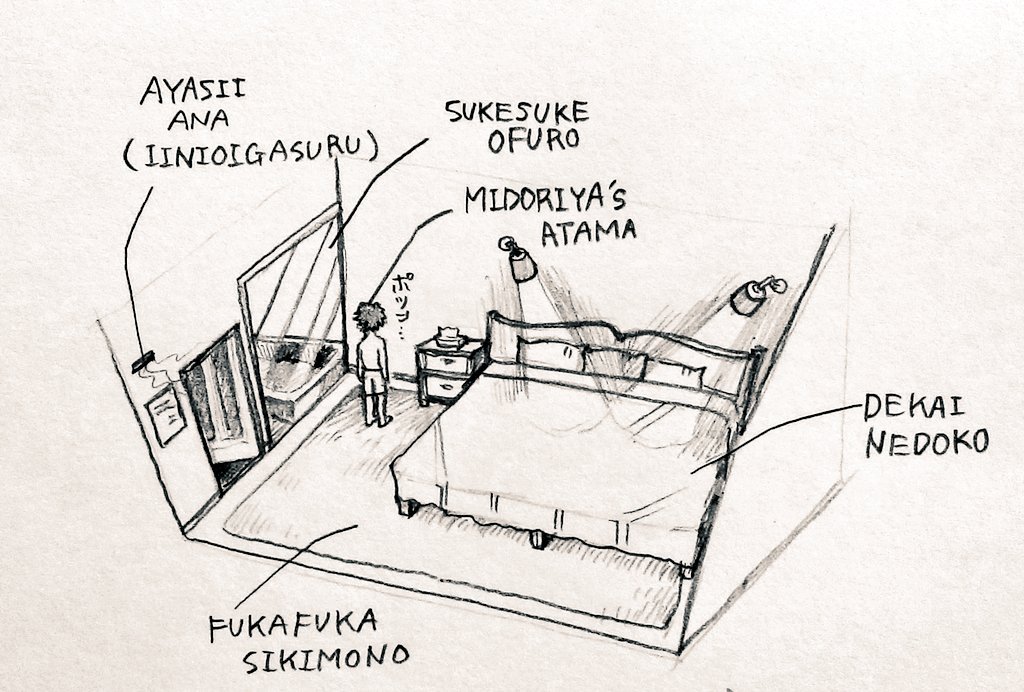 AYASII
ANA
(IINIOIGASURU)
SUKESUKE
OFURO
MIDORIYA'S
ATAMA
ポツン…
DEKAI
NEDOKO
FUKAFUKA
SIKIMONO